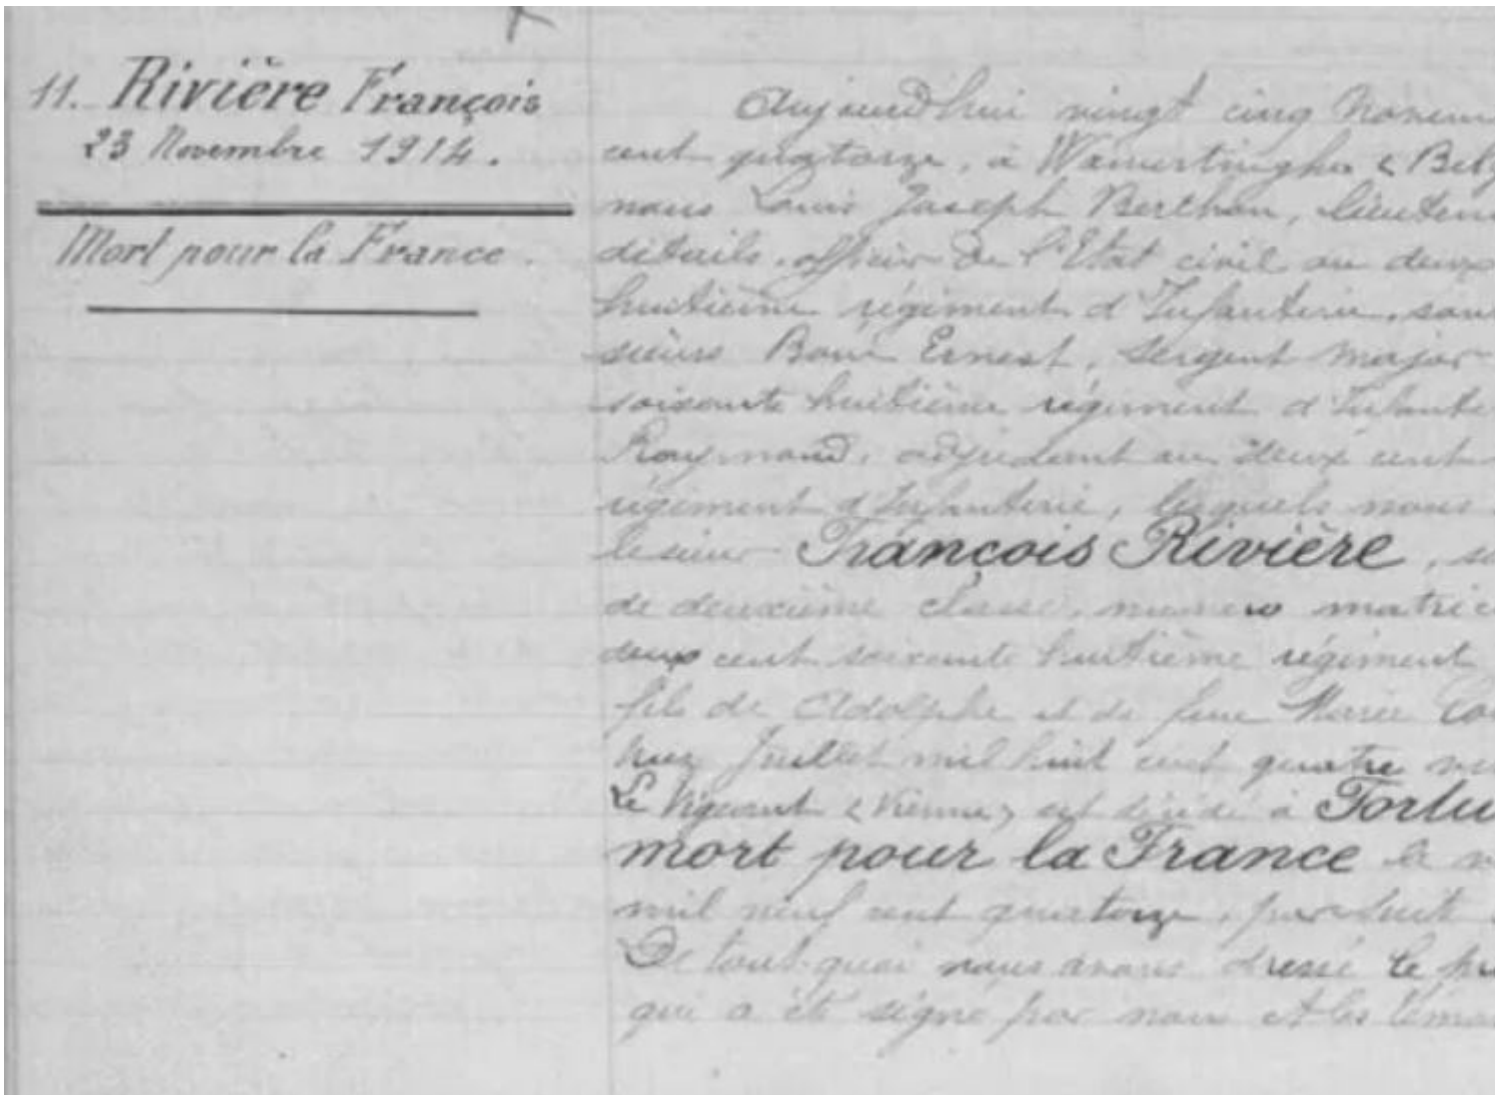 11. Rivière François
23 Novembre 1914.
Mort pour la France.
Aujourd'hui vingt cinq Novem
cent quatorze, à (Belg
nous Louis Joseph Berthon, lieuten
détails, officier de l'Etat civil au deux
huitième régiment d'Infanterie, sou
sieurs Ernest, sergent major
soixante huitième régiment d'Infante
Raymond, adjudant au deux cent
régiment d'Infanterie, lesquels nous
le sieur François Rivière, so
de deuxième classe, numéro matric
deux cent soixante huitième régiment
fils de Adolphe et de feue Marie
Juillet mil huit cent quatre vi
Le Vigeant (Vienne) est décédé à Fortu
mort pour la France le v
mil neuf cent quatorze, par suit
De tout quoi nous avons dressé le pr
qui a été signé par nous et les témoi